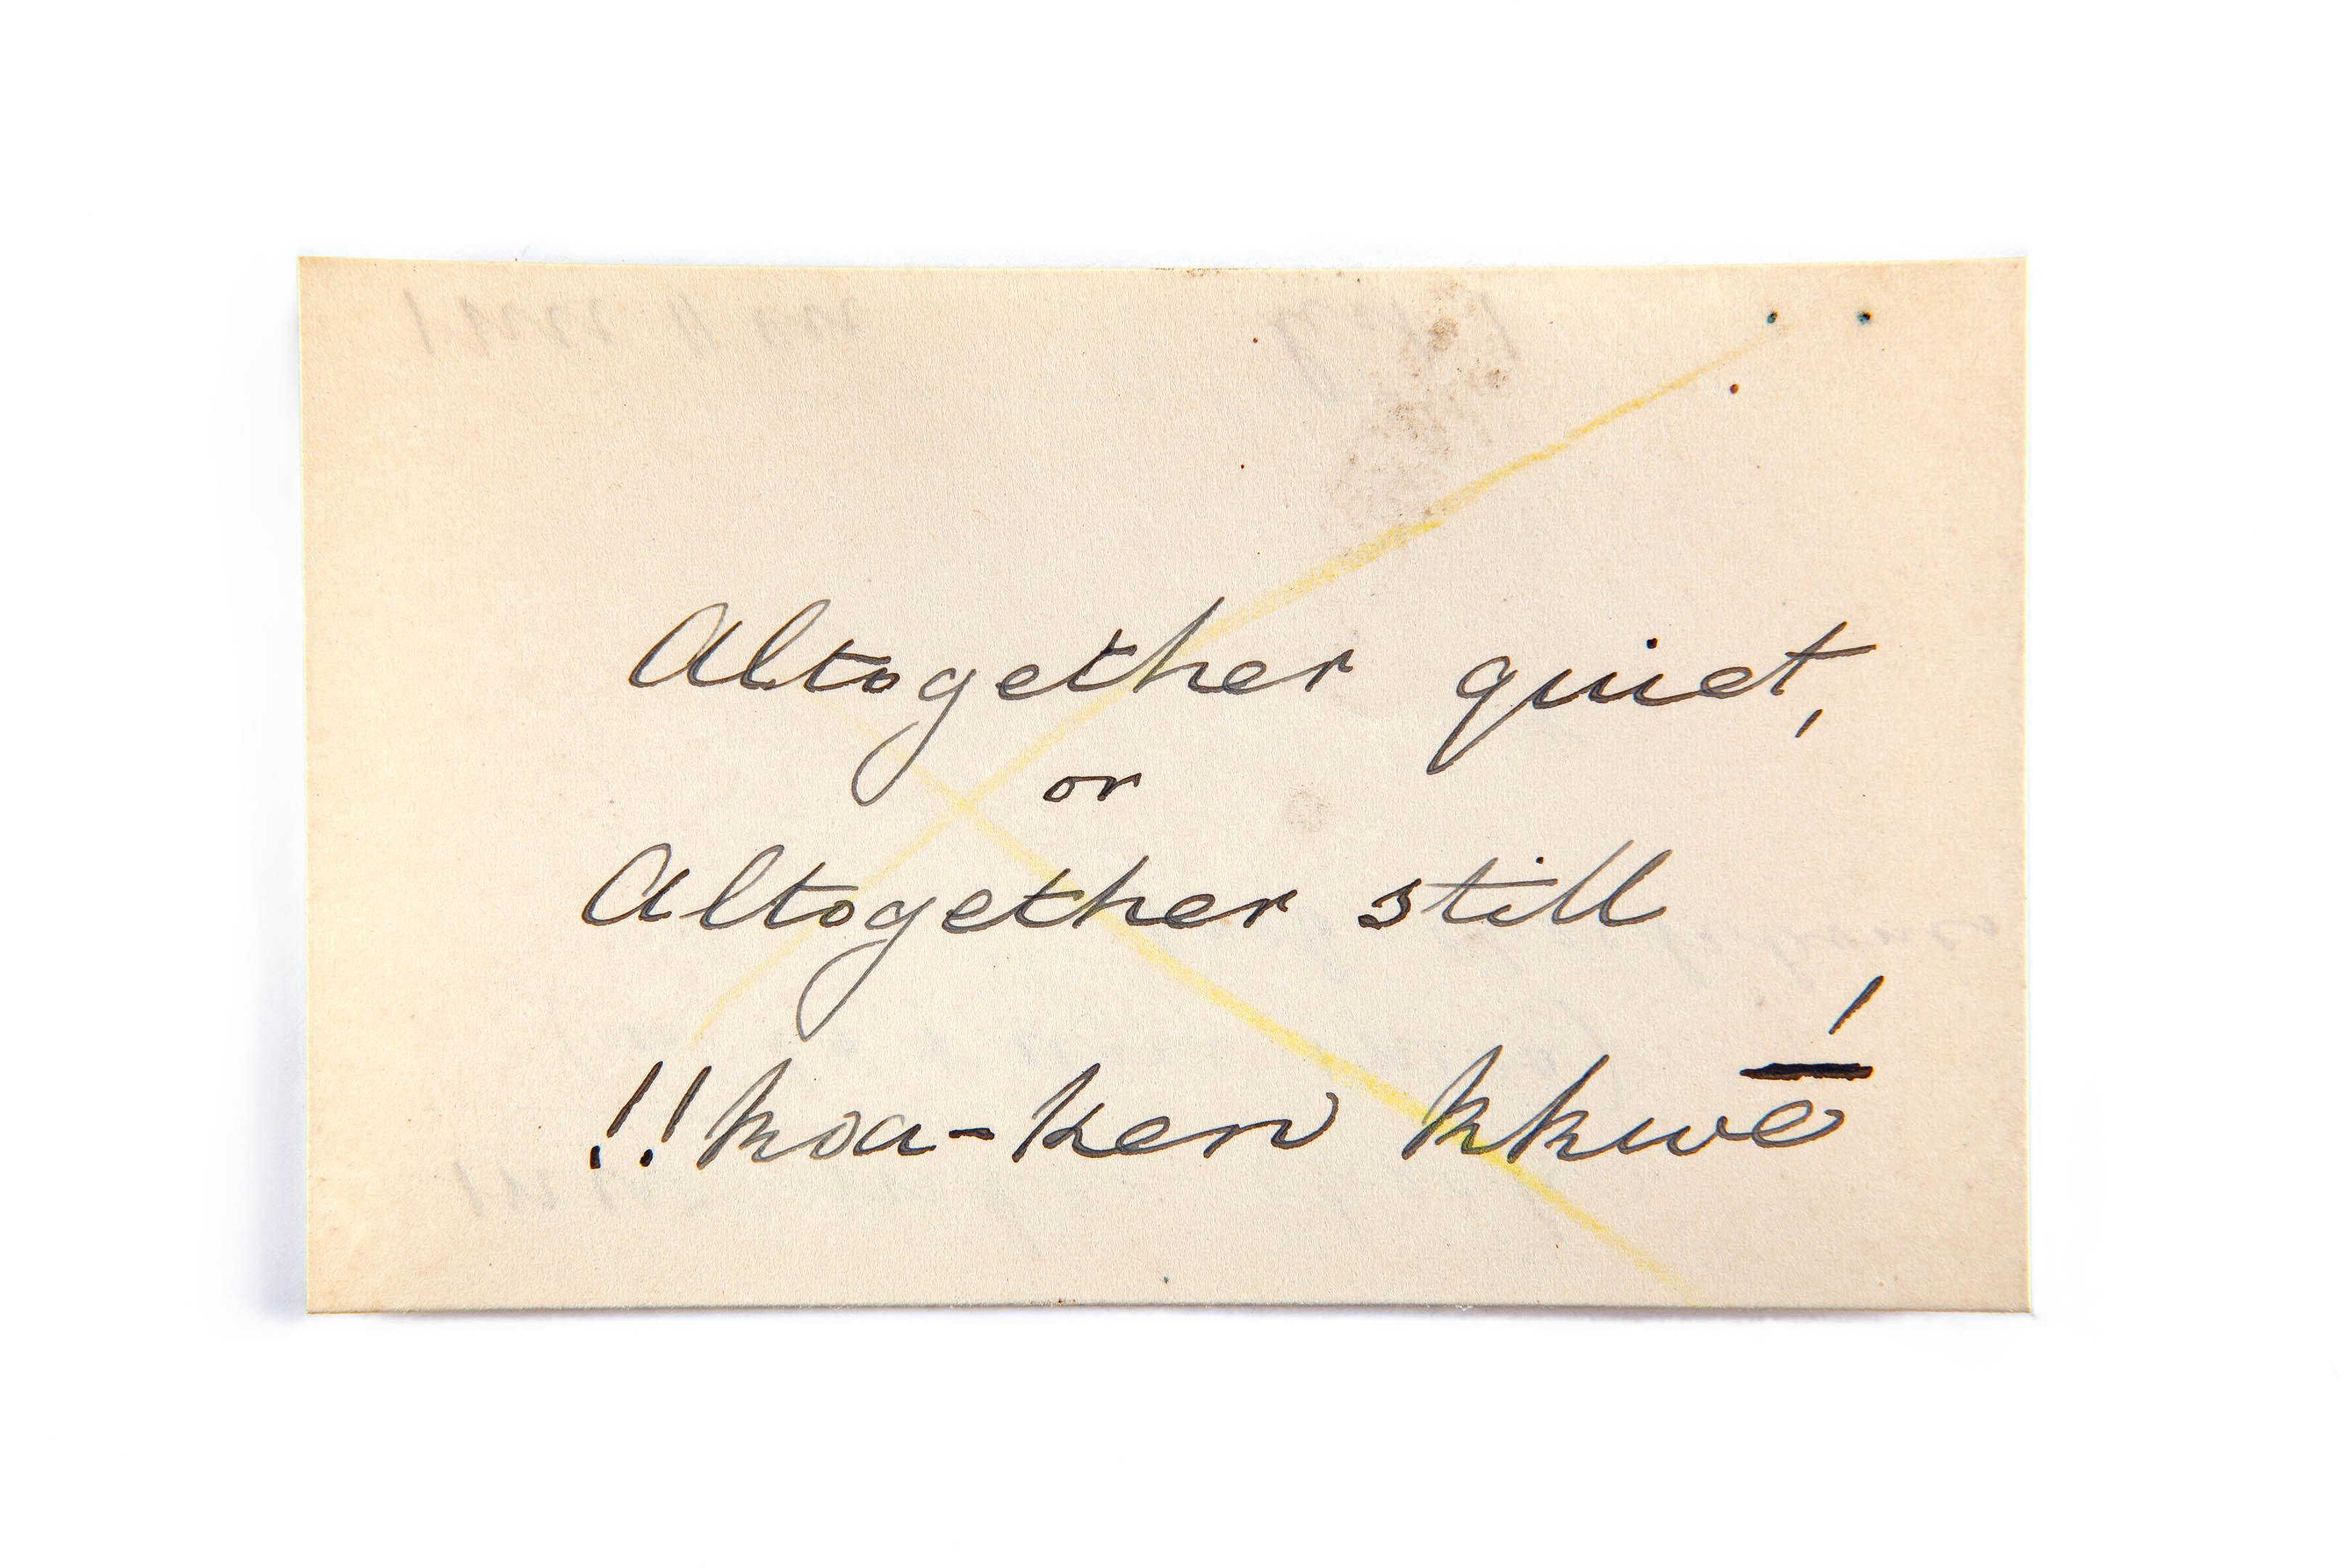 Altogether quiet,
or
Altogether still
!!koa-ken kkwḗ